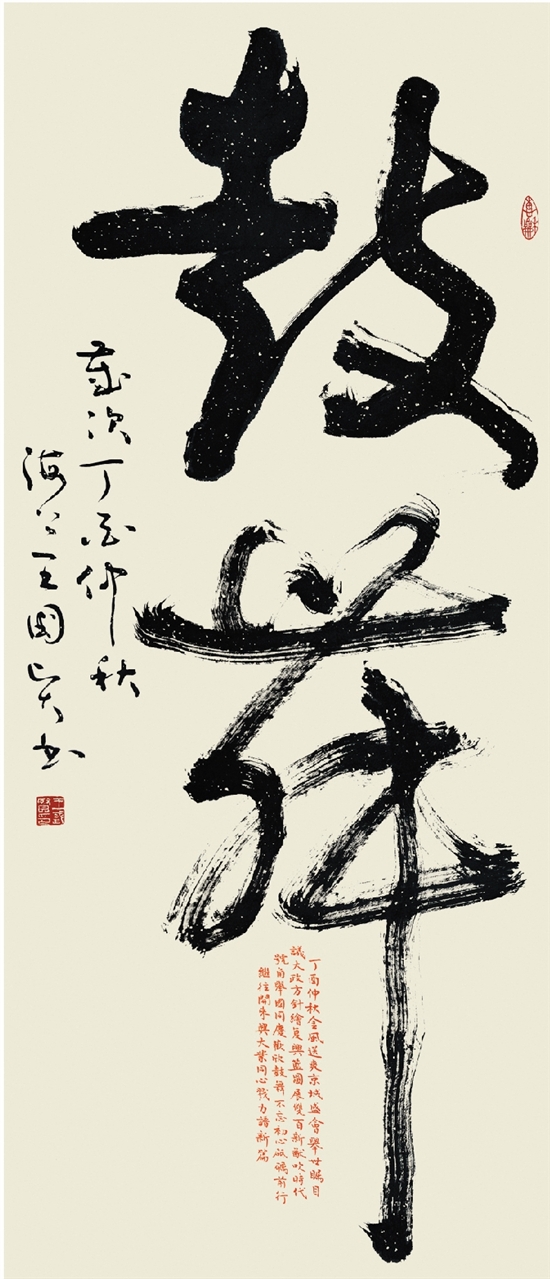 鼓舞
歲次丁酉仲秋
海上王國賢書
丁酉仲秋金風送爽京城盛會舉世矚目
議大政方針繪复興藍圖展雙百新猷吹時代
號角舉國同慶歡欣鼓舞不忘初心砥礪前行
繼往開來興大業同心戮力譜新篇